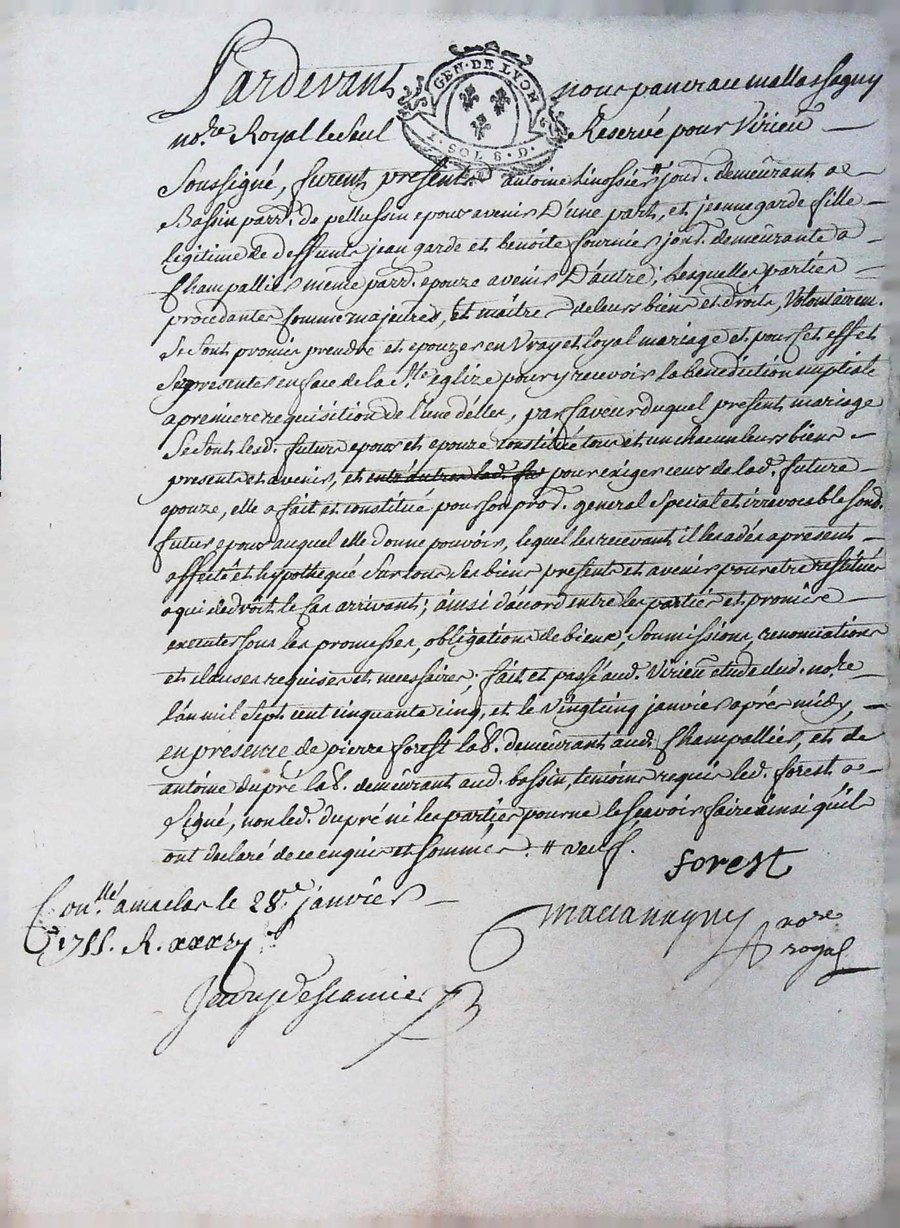 Pardevant nous pancrace mallassagny
GEN · DE LYON
1 · SOL 8 · D ·
no.re Royal le seul Reservé pour Virieu —
Soussigné, furent présents antoine Linossier # jour.r demeûrant a —
Bassin parr.e de pellussin epoux avenir D'une part, et jeanne garde fille —
légitime de deffunts jean garde et benoite fournier jour.r demeûrante a —
Champallier même parr.e epouze avenir D'autre; Lesquelles parties —
procédantes Comme majeures, et maître de leurs biens et droits, Volontairem.t
Se sont promis prendre et epouzer en Vray et loyal mariage et pour cet effet
Se présenter en face de la S.te églize pour y recevoir la bénédiction nuptiale
a première requisition de l'une d'elles, par faveur duquel présent mariage
Se sont lesd. futurs epoux et epouze constitué tous et un chacun leurs biens —
présents et avenir, et entr'autres lad. fu pour exiger ceux de lad. future —
epouze, elle a fait et constitué pour son proc.r général spécial et irrévocable sond.
futur epoux auquel elle donne pouvoir, lequel les recevant il les a dès a présent —
affecté et hypothéqué sur tous ses biens présents et avenir pour etre restitués
a qui de droit le cas arrivant; ainsi d'acord entre les parties et promis —
executer sous les promesses, obligations de biens, soumissions, renonciations
et clauses requises et necessaire, fait et passé aud. Virieu etude dud. no.re
L'an mil sept cent cinquante cinq, et le Vingt cinq janvier après midy, —
en presence de pierre forest lab.r demeûrant aud. Champallier, et de
antoine dupré lab.r demeûrant aud. bassin, temoins requis led. forest a —
signé, non led. dupré ni les parties pour ne le sçavoir faire ainsi qu'ils
ont declaré de ce enquis et sommés. # veuf.
forest
Con.llé a maclas le 28.e janvier —
1755. R.
no.re
royal